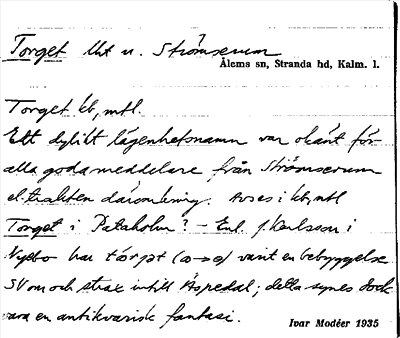 Torget lht u. Strömserum
Ålems sn, Stranda hd, Kalm. l.
Torget kb, mtl.
Ett dylikt lägenhetsnamn var okänt för
alla goda meddelare från Strömserum
el. trakten däromkring. Avses i kb, mtl
Torget i Pataholm? – Enl. J. Karlsson i
Nybo har tórjət (o→ɔ) varit en bebyggelse
SV om och strax intill Äspedal; detta synes dock
vara en antikvarisk fantasi.
Ivar Modéer 1935